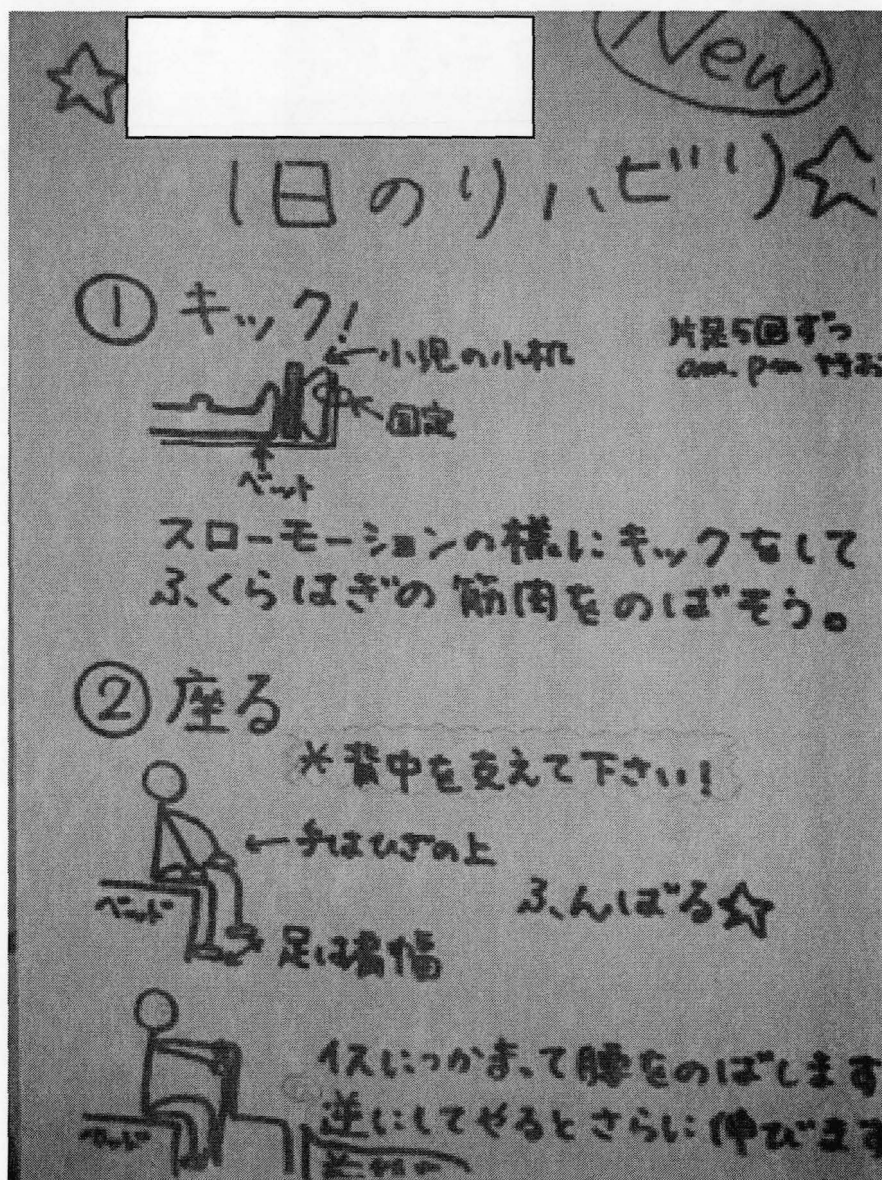 ☆ New
1日のリハビリ☆
① キック!
←小児の小机
片足5回ずつ
am. pm
固定
ベット
スローモーションの様にキックをして
ふくらはぎの筋肉をのばそう。
② 座る
*背中を支えて下さい!
←手はひざの上
ベッド
ふんばる☆
足は肩幅
イスにつかまって腰をのばします
逆にしてやるとさらに伸びます
ベッド